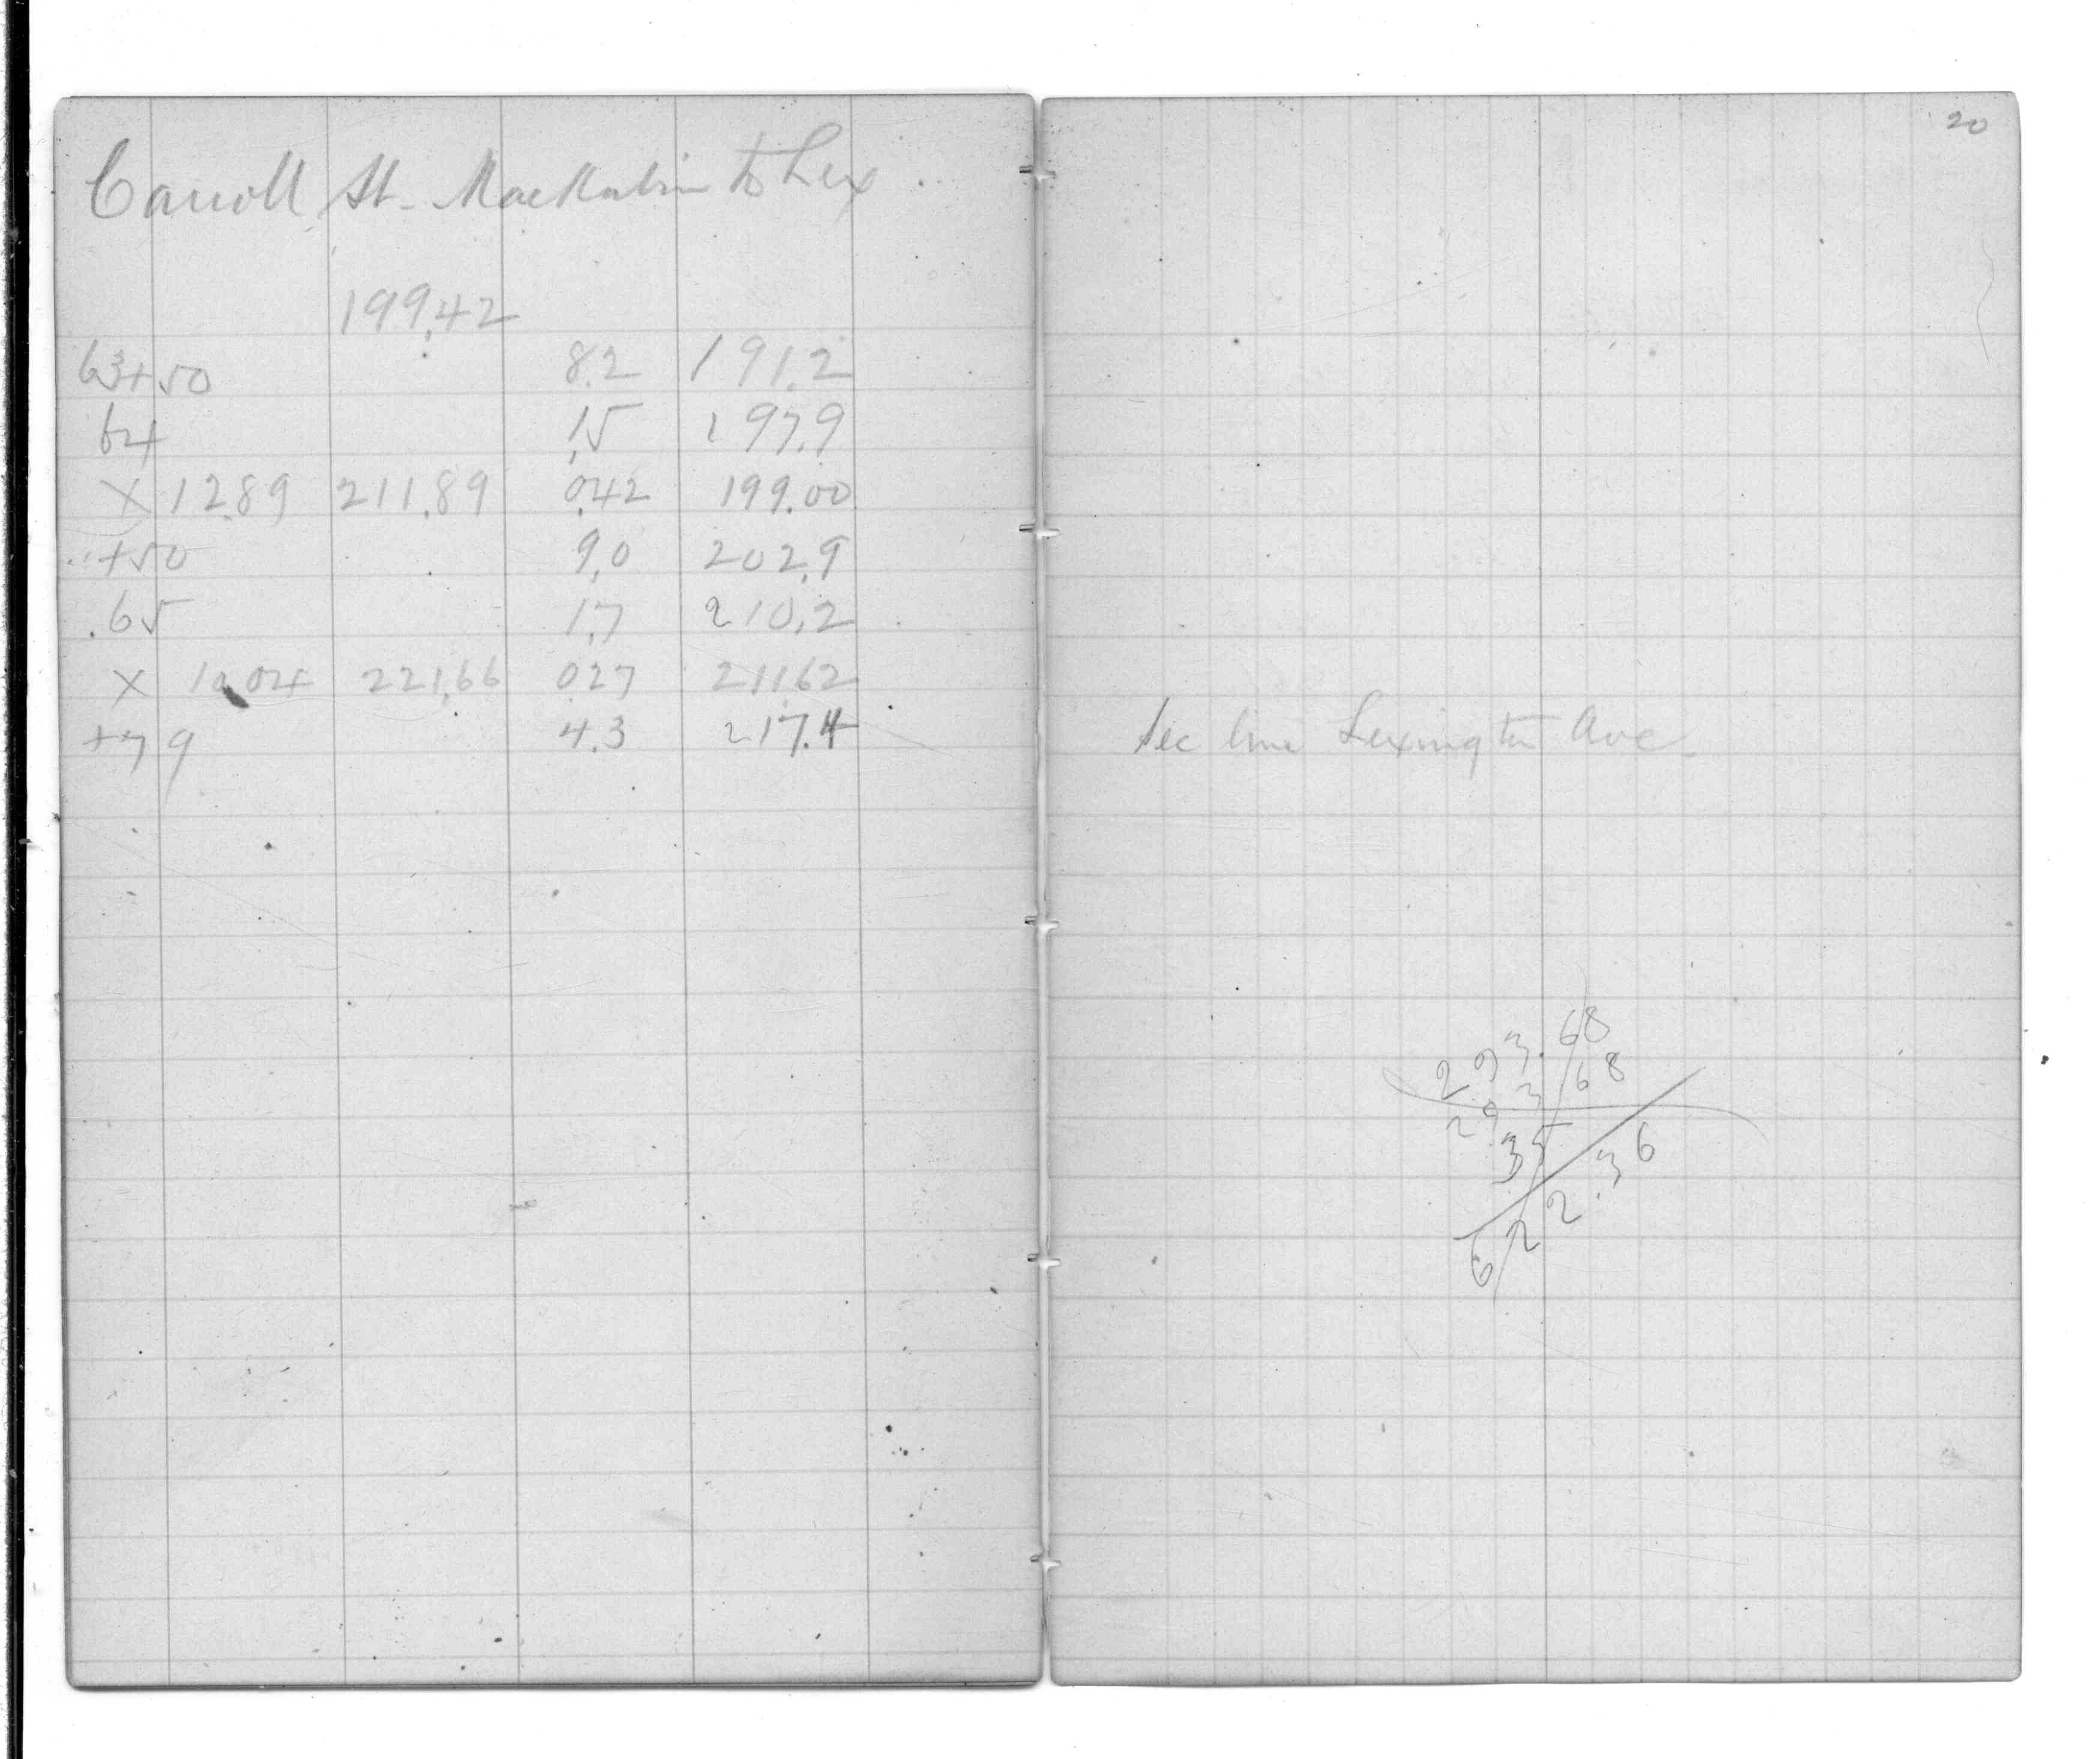 Carroll St. MacKubin to Lex
199.42
63+50 8.2 191.2
64 1.5 197.9
X 12.89 211.89 0.42 199.00
+50 9.0 202.9
65 1.7 210.2
X 10.04 221.66 0.27 211.62
+79 4.3 217.4
20
Sec line Lexington Ave
293.68
293 68
35
622.36